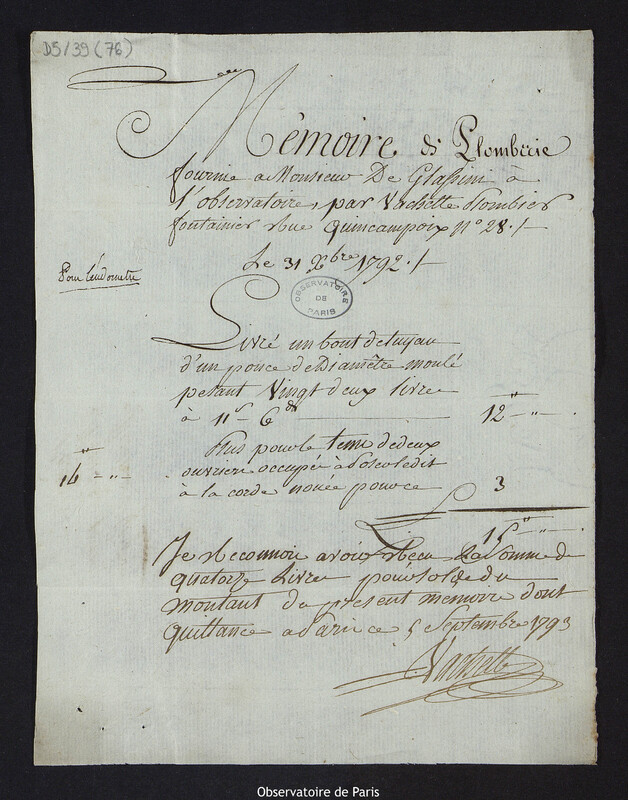 D5/39 (76)
Mémoire de Plomberie
fournie a Monsieur De Glassini à
l'observatoire, par Vachette Plombier
fontainier rue quincampoix n° 28./.
Le 31 Xbre 1792./.
Pour l'eudometre
OBSERVATOIRE DE PARIS
Livré un bout de tuyau
d'un pouce de Diamêtre moulé
pesant Vingt deux livre
à 11s 6d 12 " - " - .
Plus pour le tems de deux
ouvriers occupée à
14 " - " -
à la corde nouée pour ce 3
15 " - " -
Je reconnoi avoir recu la Somme de
quatorze Livre pour solde du
montant du present memoire dont
quittance a Paris ce 5 Septembre 1793
Vachette
Observatoire de Paris